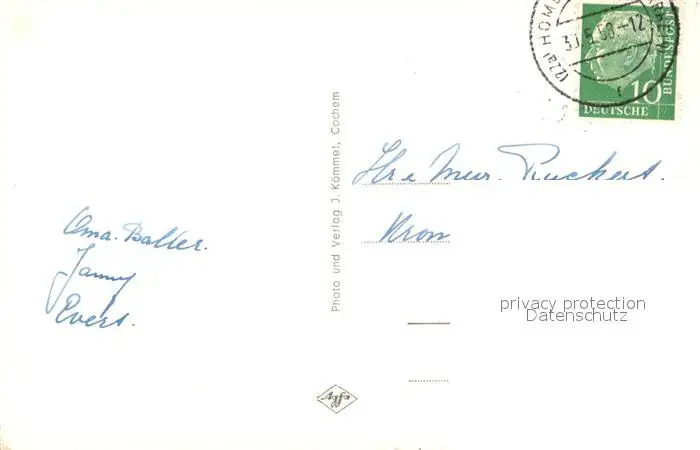 (22a) HOMB
30.5.58-12
10
DEUTSCHE
BUNDESPOST
Photo und Verlag J. Kömmet, Cochem
Ruckert.
Oma. Balter.
Janny
Evert.
privacy protection
Datenschutz
Agfa